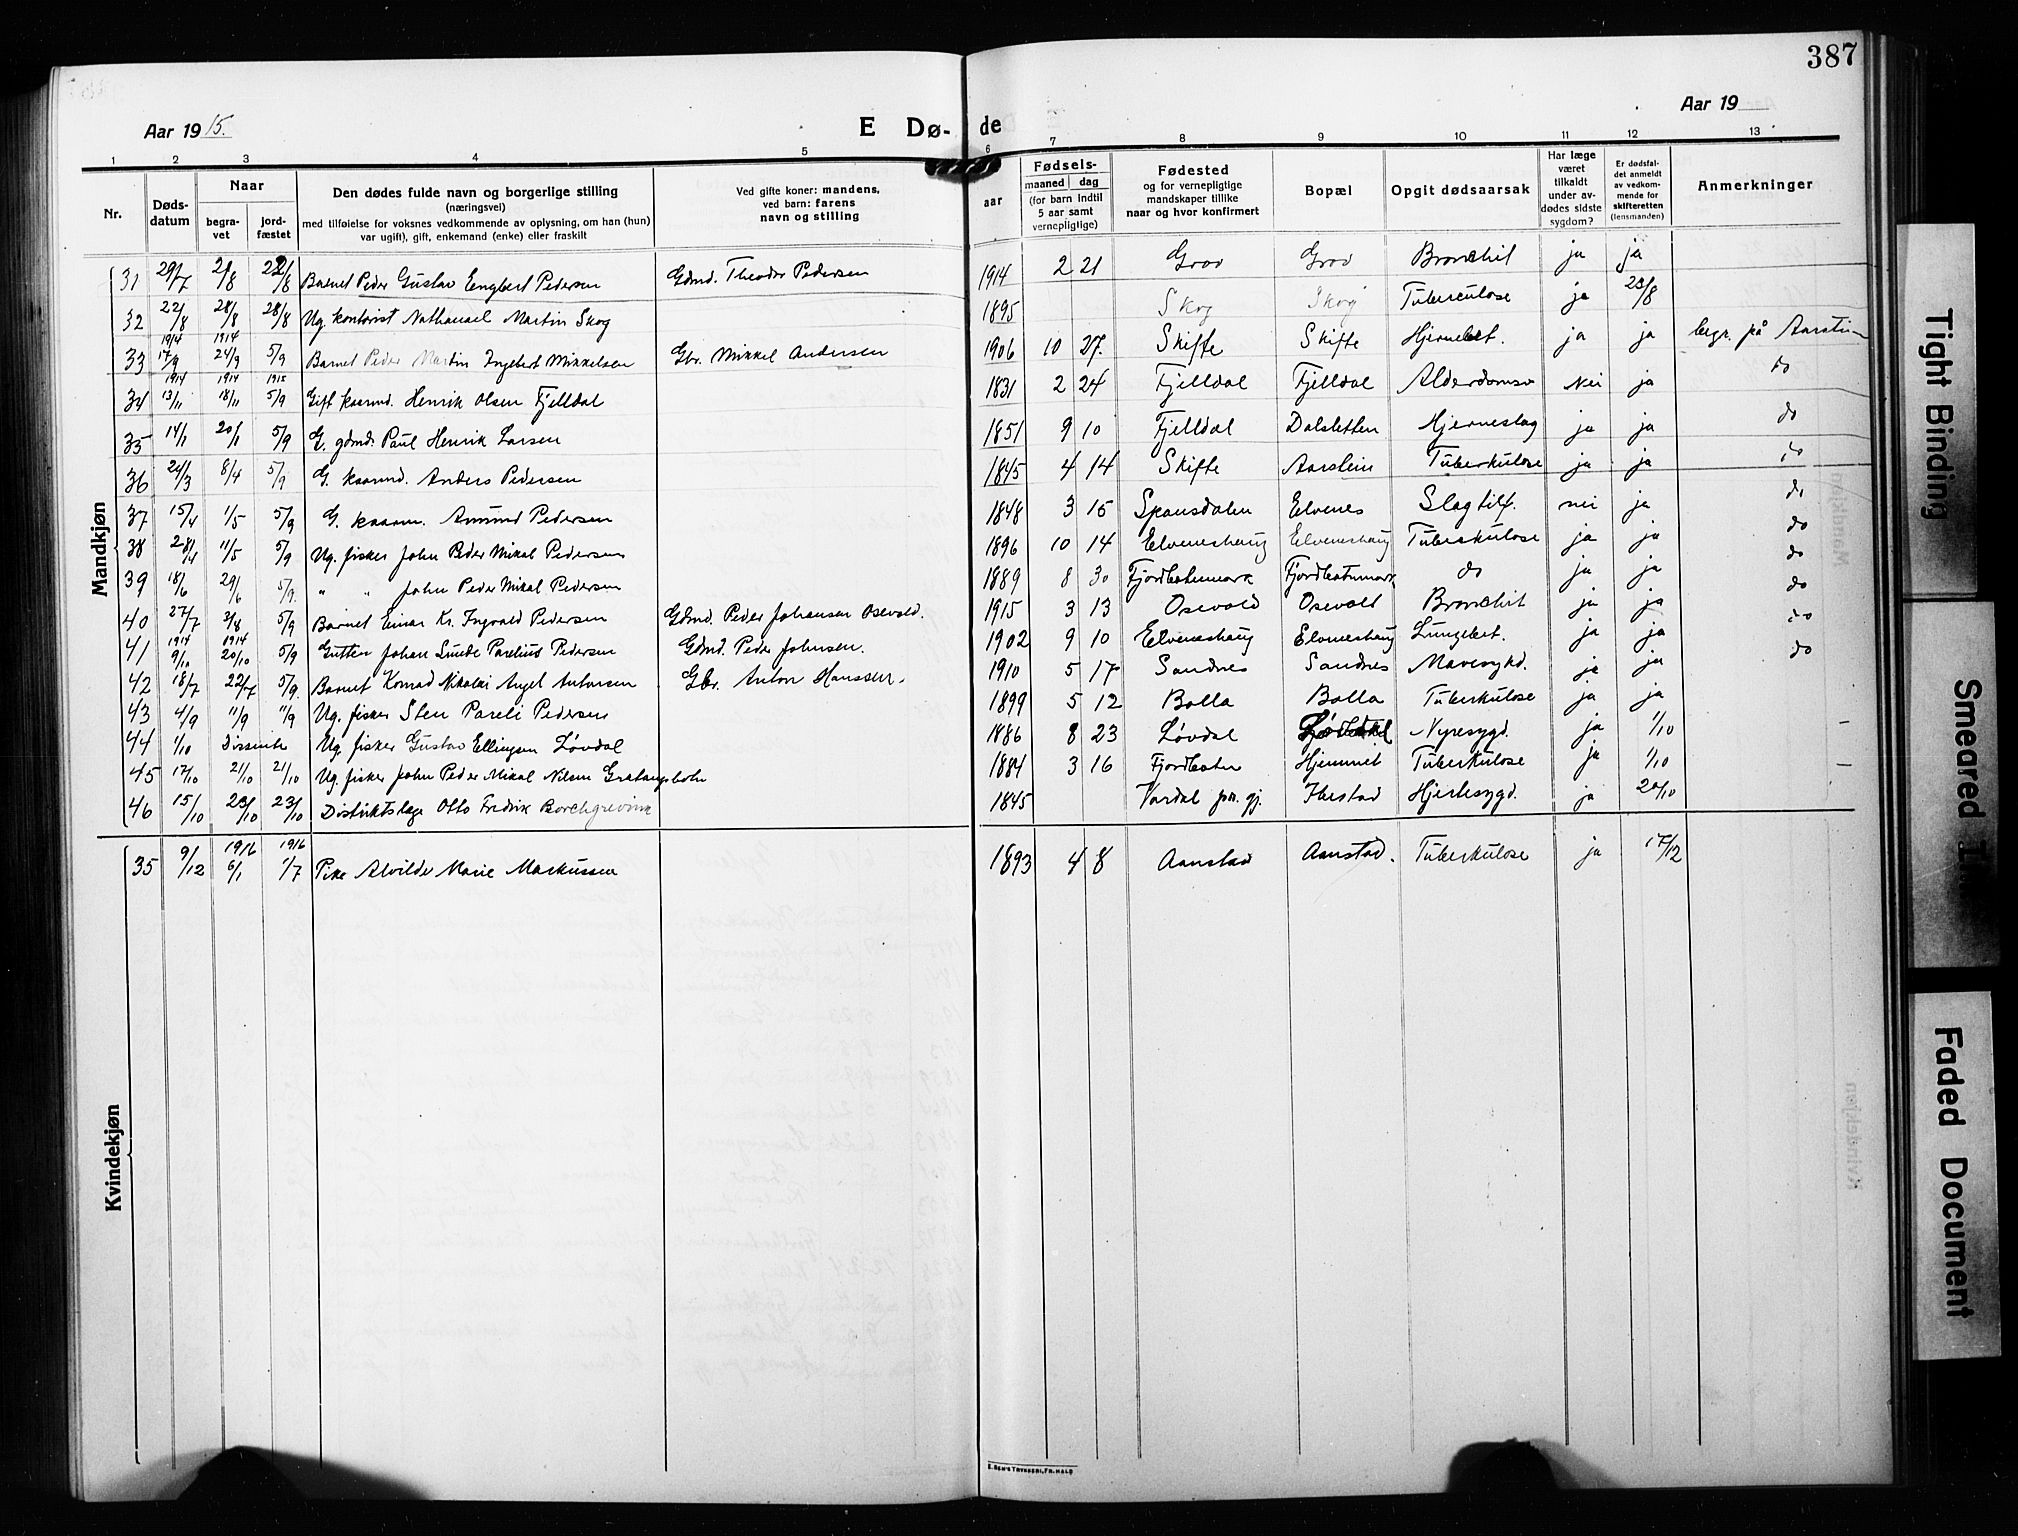 387
Aar 1915. E Dø- de Aar 19
1 2 3 4 5 6 7 8 9 10 11 12 13
Nr. Døds-datum Naar begra-vet jord-fæstet Den dødes fulde navn og borgerlige stilling (næringsvei) med tilføielse for voksnes vedkommende av oplysning, om han (hun) var ugift), gift, enkemand (enke) eller fraskilt Ved gifte koner: mandens, ved barn: farens navn og stilling aar Fødsels- maaned dag (for barn indtil 5 aar samt vernepligtige) Fødested og for vernepligtige mandskaper tillike naar og hvor konfirmert Bopæl Opgit dødsaarsak Har læge været tilkaldt under av-dødes sidste sygdom? Er dødsfal-det anmeldt av vedkom-mende for skifteretten (lensmanden) Anmerkninger
Mandkjøn
31 29/7 2/8 22/8 Barnet Peder Gustav Engbert Pedersen Gdmd. Theodor Pedersen 1914 2 21 Grov Grov Bronchit ja ja
32 22/8 28/8 28/8 Ug. kontorist Nathanael Martin Skog 1895 Skog Skog Tuberculose ja 23/8
33 1914 17/9 1914 24/9 5/9 Barnet Peder Martin Ingebert Mikkelsen Gbr. Mikkel Andersen 1906 10 27. Skifte Skifte Hjernebet. ja ja begr. på Aarstein
34 1914 13/11 1914 18/11 1915 5/9 Gift kaarmd. Henrik Olsen Fjelldal 1831 2 24 Fjelldal Fjelldal Alderdomsv Nei ja do
35 14/1 20/1 5/9 G. gdmd. Paul Henrik Larsen 1851 9 10 Fjelldal Dalsletten Hjerneslag ja ja do
36 24/3 8/4 5/9 G. kaarmd. Anders Pedersen 1845 4 14 Skifte Aarstein Tuberkulose ja ja do
37 15/4 1/5 5/9 G. kaarm. Amund Pedersen 1848 3 15 Spansdalen Elvenes Slagtilf. nei ja do
38 28/4 11/5 5/9 Ug. fisker John Peder Mikal Pedersen 1896 10 14 Elveneshaug Elveneshaug Tuberkulose ja ja do
39 18/6 29/6 5/9. " " John Peder Mikal Pedersen 1889 8 30 Fjordbotnmark Fjordbotnmark do ja ja do
40 27/7 3/8 5/9 Barnet Einar Kr. Ingvald Pedersen Gdmd. Peder Johansen Osevold. 1915 3 13 Osevold Osevold Bronchit ja ja do
41 1914 9/10 1914 20/10 5/9 Gutten Johan Smede Parelius Pedersen Gdmd. Peder Johnsen. 1902 9 10 Elveneshaug Elveneshaug Lungebet. ja ja do
42 18/7 22/7 5/9. Barnet Konrad Nikolai Angel Antonsen Gbr. Anton Hanssen. 1910 5 17 Sandnes Sandnes Mavesykd. ja ja do
43 4/9 11/9 11/9 Ug. fisker Sten Pareli Pedersen 1899 5 12 Bolla Bolla Tuberkulose ja ja
44 1/10 Ug. fisker Gustav Ellingsen Løvdal 1886 8 23 Løvdal Løvdal Nyresygd. ja 1/10 –
45 17/10 21/10 21/10 Ug. fisker John Peder Mikal Nilsen Gratangsbotn 1884 3 16 Fjordbotn Hjemmet Tuberkulose ja 1/10 –
46 15/10 23/10 23/10 Distriktslæge Otto Fredrik Borchgrevink 1845 Vardal Ibestad Hjertesygd. ja 20/10
Kvindekjøn
35 9/12 1916 6/1 1916 1/7 Pike Alvilde Marie Markussen 1893 4 8 Aanstad Aanstad. Tuberkulose ja 17/12
E. SEM'S TRYKKERI, FR.HALD
Tight Binding
Smeared Ink
Faded Document